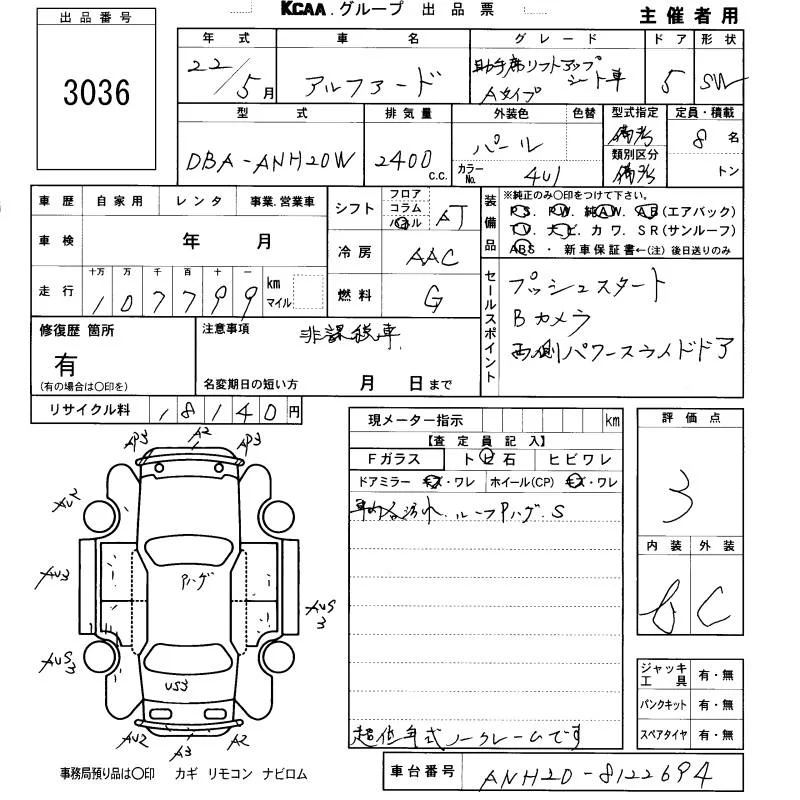 KCAA.グループ 出品票
主催者用
出品番号
3036
年式 車名 グレード ドア 形状
22/5月 アルファード 助手席リフトアップシート車 Aタイプ 5 SW
型式 排気量 外装色 色替 型式指定 定員・積載
DBA-ANH20W 2400 c.c. パール 備考 8名
カラーNo. 4U1 類別区分 備考 トン
車歴 自家用 レンタ 事業.営業車
シフト フロア コラム パネル AT
装備品
※純正のみ○印をつけて下さい。
PS. PW. 純AW. AB(エアバック)
TV. ナビ. カワ. SR(サンルーフ)
ABS ・ 新車保証書←(注) 後日送りのみ
車検 年 月
冷房 AAC
走行 十万 万 千 百 十 一
107799 km マイル
燃料 G
セールスポイント
プッシュスタート
Bカメラ
両側パワースライドドア
修復歴 箇所
有
(有の場合は○印を)
注意事項 非課税車.
名変期日の短い方 月 日まで
リサイクル料 18140円
現メーター指示 km
【査定員記入】
Fガラス トビ石 ヒビワレ
ドアミラー キズ・ワレ ホイール(CP) キズ・ワレ
車内各汚れ. ルーフPハゲ.S
超低年式ノークレームです
評価点
3
内装 外装
C
ジャッキ工具 有・無
パンクキット 有・無
スペアタイヤ 有・無
AP3 A2 AP3
AU2
AU3
Pハゲ
AUS3
AUS3
US3
AU2 A3 A2
事務局預り品は○印 カギ リモコン ナビロム
車台番号 ANH20-8122694